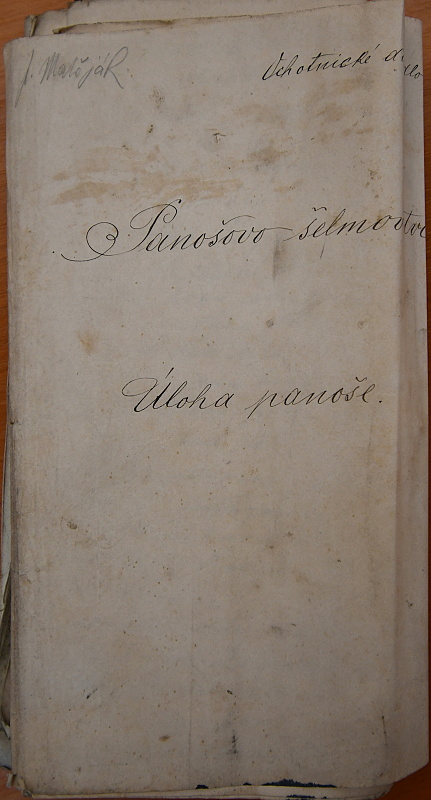 J. Matěják
Ochotnické di
dlo
Panošovo šelmovstv
Úloha panoše.